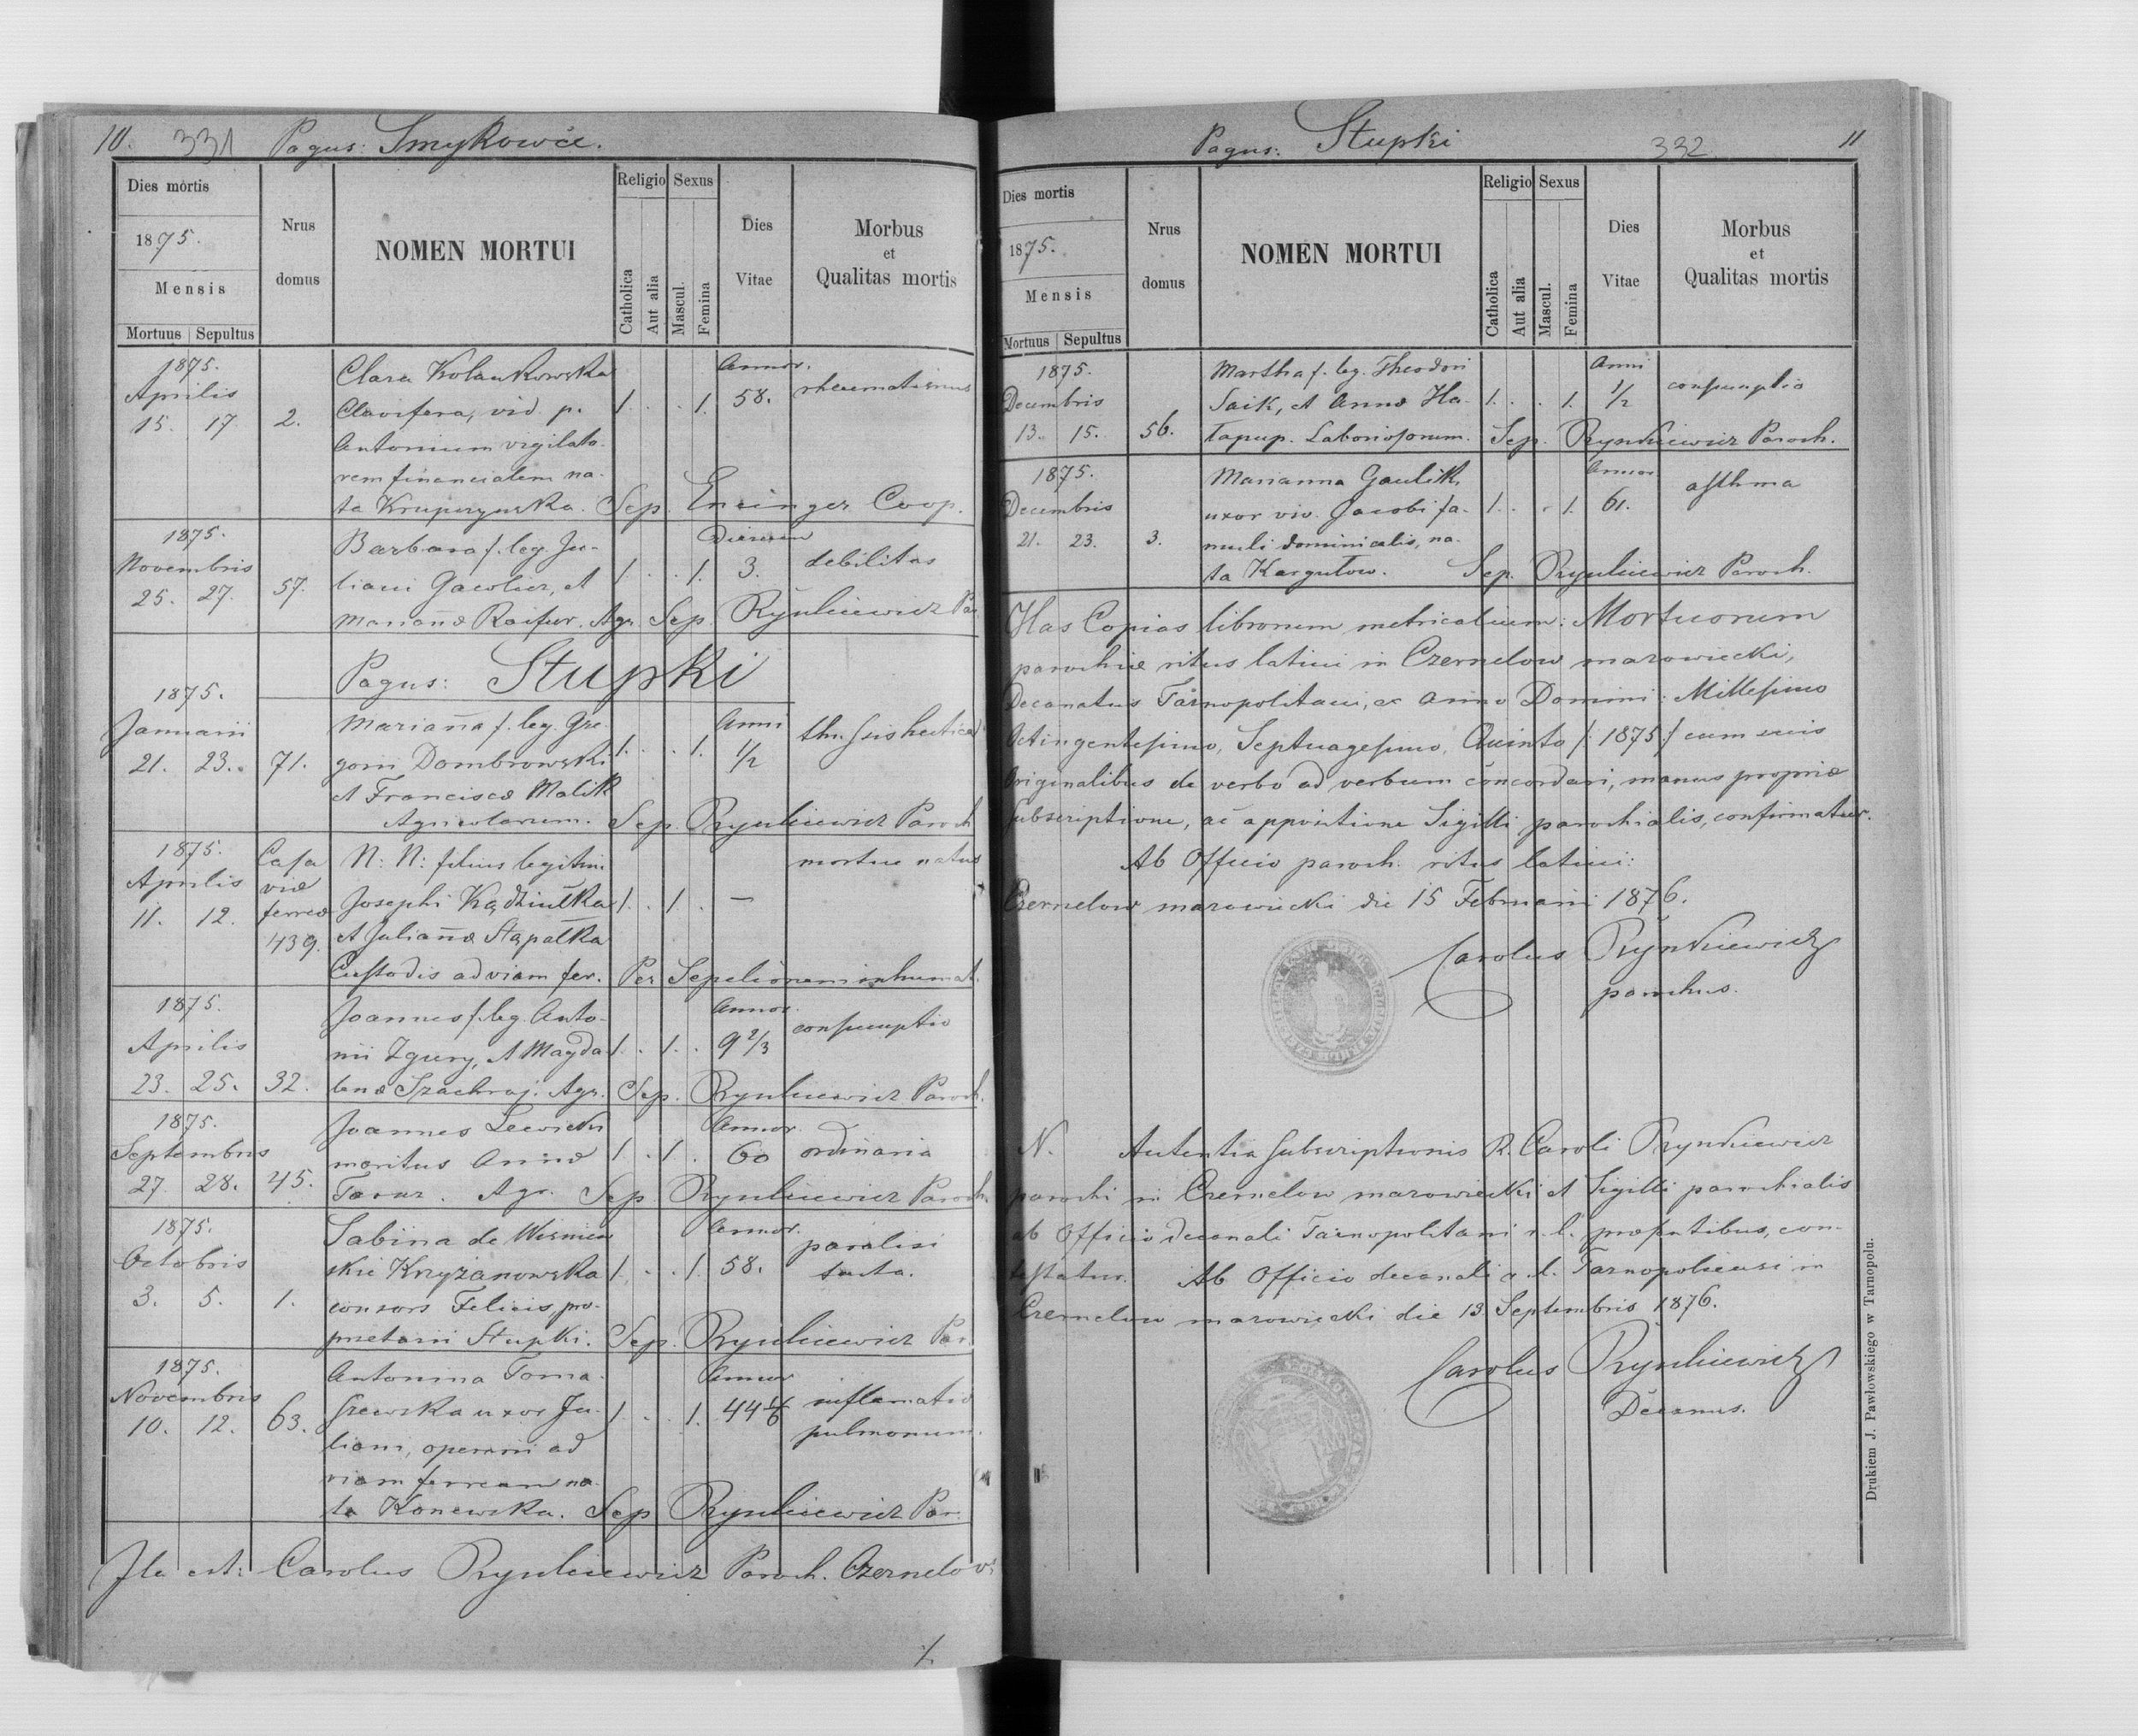 10. 331 Pagus: Smykowce.
Dies mortis
1875.
Mensis
Mortuus Sepultus
Nrus domus
NOMEN MORTUI
Religio
Catholica
Aut alia
Sexus
Mascul.
Femina
Dies Vitae
Morbus
et
Qualitas mortis
1875.
Aprilis
15. 17. 2.
Clara Kolankowska
Clavifera, vid. p.
Antonium vigilato-
rem financialem na-
ta Krupczynska. Sep. Enzinger Coop.
1. . . 1.
Annor.
58.
rheumatismus
1875.
Novembris
25. 27. 57.
Barbara f. leg. Ju-
liani Gacolicz, et
Marianae Raifur. Agr. Sep. Rynkiewicz Par.
1. . . 1.
Dierum
3.
debilitas
Pagus: Stupki
1875.
Januarii
21. 23. 71.
Marianna f. leg. Gre-
gorii Dombrowski
et Franciscae Malik
Agricolarum. Sep. Rynkiewicz Paroch.
1. . . 1.
Anni
1/2
1875.
Aprilis
11. 12.
Casa
viae
ferreae
439.
N: N: filius legitimi
Josephi Kądziułka
et Juliannae Stąpałka
Custodis ad viam fer. Per Sepelionem inhumat.
1. . 1. . —
mortue natus
1875.
Aprilis
23. 25. 32.
Joannes f. leg. Anto-
nii Zgury, et Magda-
lenae Szachraj. Agr. Sep. Rynkiewicz Paroch.
1. . 1. .
Annor.
9 2/3
consumptio
1875.
Septembris
27. 28. 45.
Joannes Lewicki
maritus Annae
Tarar. Agr. Sep. Rynkiewicz Paroch.
1. . 1. .
Annor.
60
ordinaria
1875.
Octobris
3. 5. 1.
Sabina de Wisniew-
skie Krzyżanowska
consors Felicis, pro-
prietarii Stupki. Sep. Rynkiewicz Par.
1. . . 1.
Annor.
58.
paralisi
tacta.
1875.
Novembris
10. 12. 63.
Antonina Toma-
szewska uxor Ju-
liani, operarii ad
viam ferream na-
ta Konewska. Sep. Rynkiewicz Par.
1. . . 1.
Annor
44
inflamatio
pulmonum.
Ita est: Carolus Rynkiewicz Paroch. Czernelov.
Pagus: Stupki 332 11
Dies mortis
1875.
Mensis
Mortuus Sepultus
Nrus domus
NOMEN MORTUI
Religio
Catholica
Aut alia
Sexus
Mascul.
Femina
Dies Vitae
Morbus
et
Qualitas mortis
1875.
Decembris
13. 15. 56.
Martha f. leg. Theodori
Saik, et Annae Ha-
łapup. Laboriosorum. Sep. Rynkiewicz Paroch.
1. . . 1.
Anni
1/2
consumptio
1875.
Decembris
21. 23. 3.
Marianna Gaulik,
uxor viv. Jacobi fa-
muli dominicalis, na-
ta Kargutow. Sep. Rynkiewicz Paroch.
1. . . 1.
Annor
61.
asthma
Has Copias librorum metricalium: Mortuorum
parochiae ritus latini in Czernelow mazowiecki,
Decanatus Tarnopolitani, ex anno Domini: Millesimo
Octingentesimo, Septuagesimo, Quinto /: 1875 :/ cum suis
Originalibus de verbo ad verbum concordari, manus propriae
Subscriptione, ac appositione Sigilli parochialis, confirmatur.
Ab Officio paroch. ritus latini:
Czernelow mazowiecki die 15 Februarii 1876.
Carolus Rynkiewicz
parochus.
N. Autentia subscriptionis R. Caroli Rynkiewicz
parochi in Czernelow mazowiecki et Sigilli parochialis
ab Officio decanali Tarnopolitani r. l. praesentibus, con-
testatur. Ab Officio decanali r. l. Tarnopoliensi in
Czernelow mazowiecki die 13 Septembris 1876.
Carolus Rynkiewicz
Decanus.
Drukiem J. Pawłowskiego w Tarnopolu.